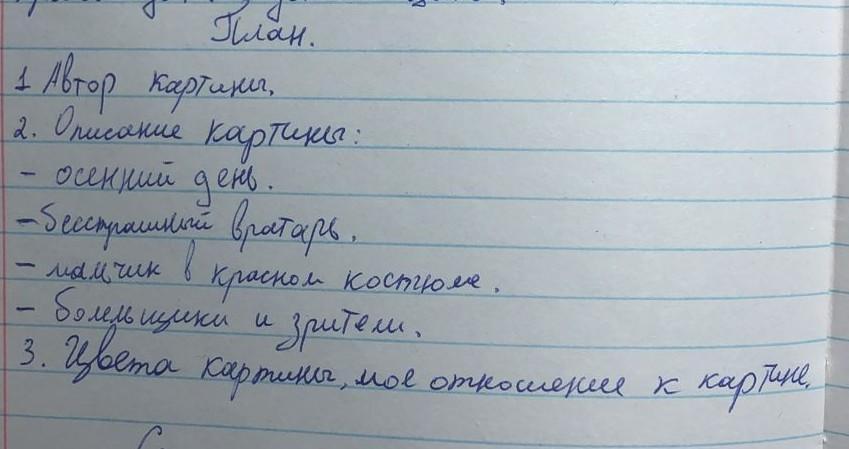 План.
1 Автор картины.
2. Описание картины:
- осенний день.
- бесстрашный вратарь.
- мальчик в красном костюме.
- болельщики и зрители.
3. Цвета картины, мое отношение к картине.